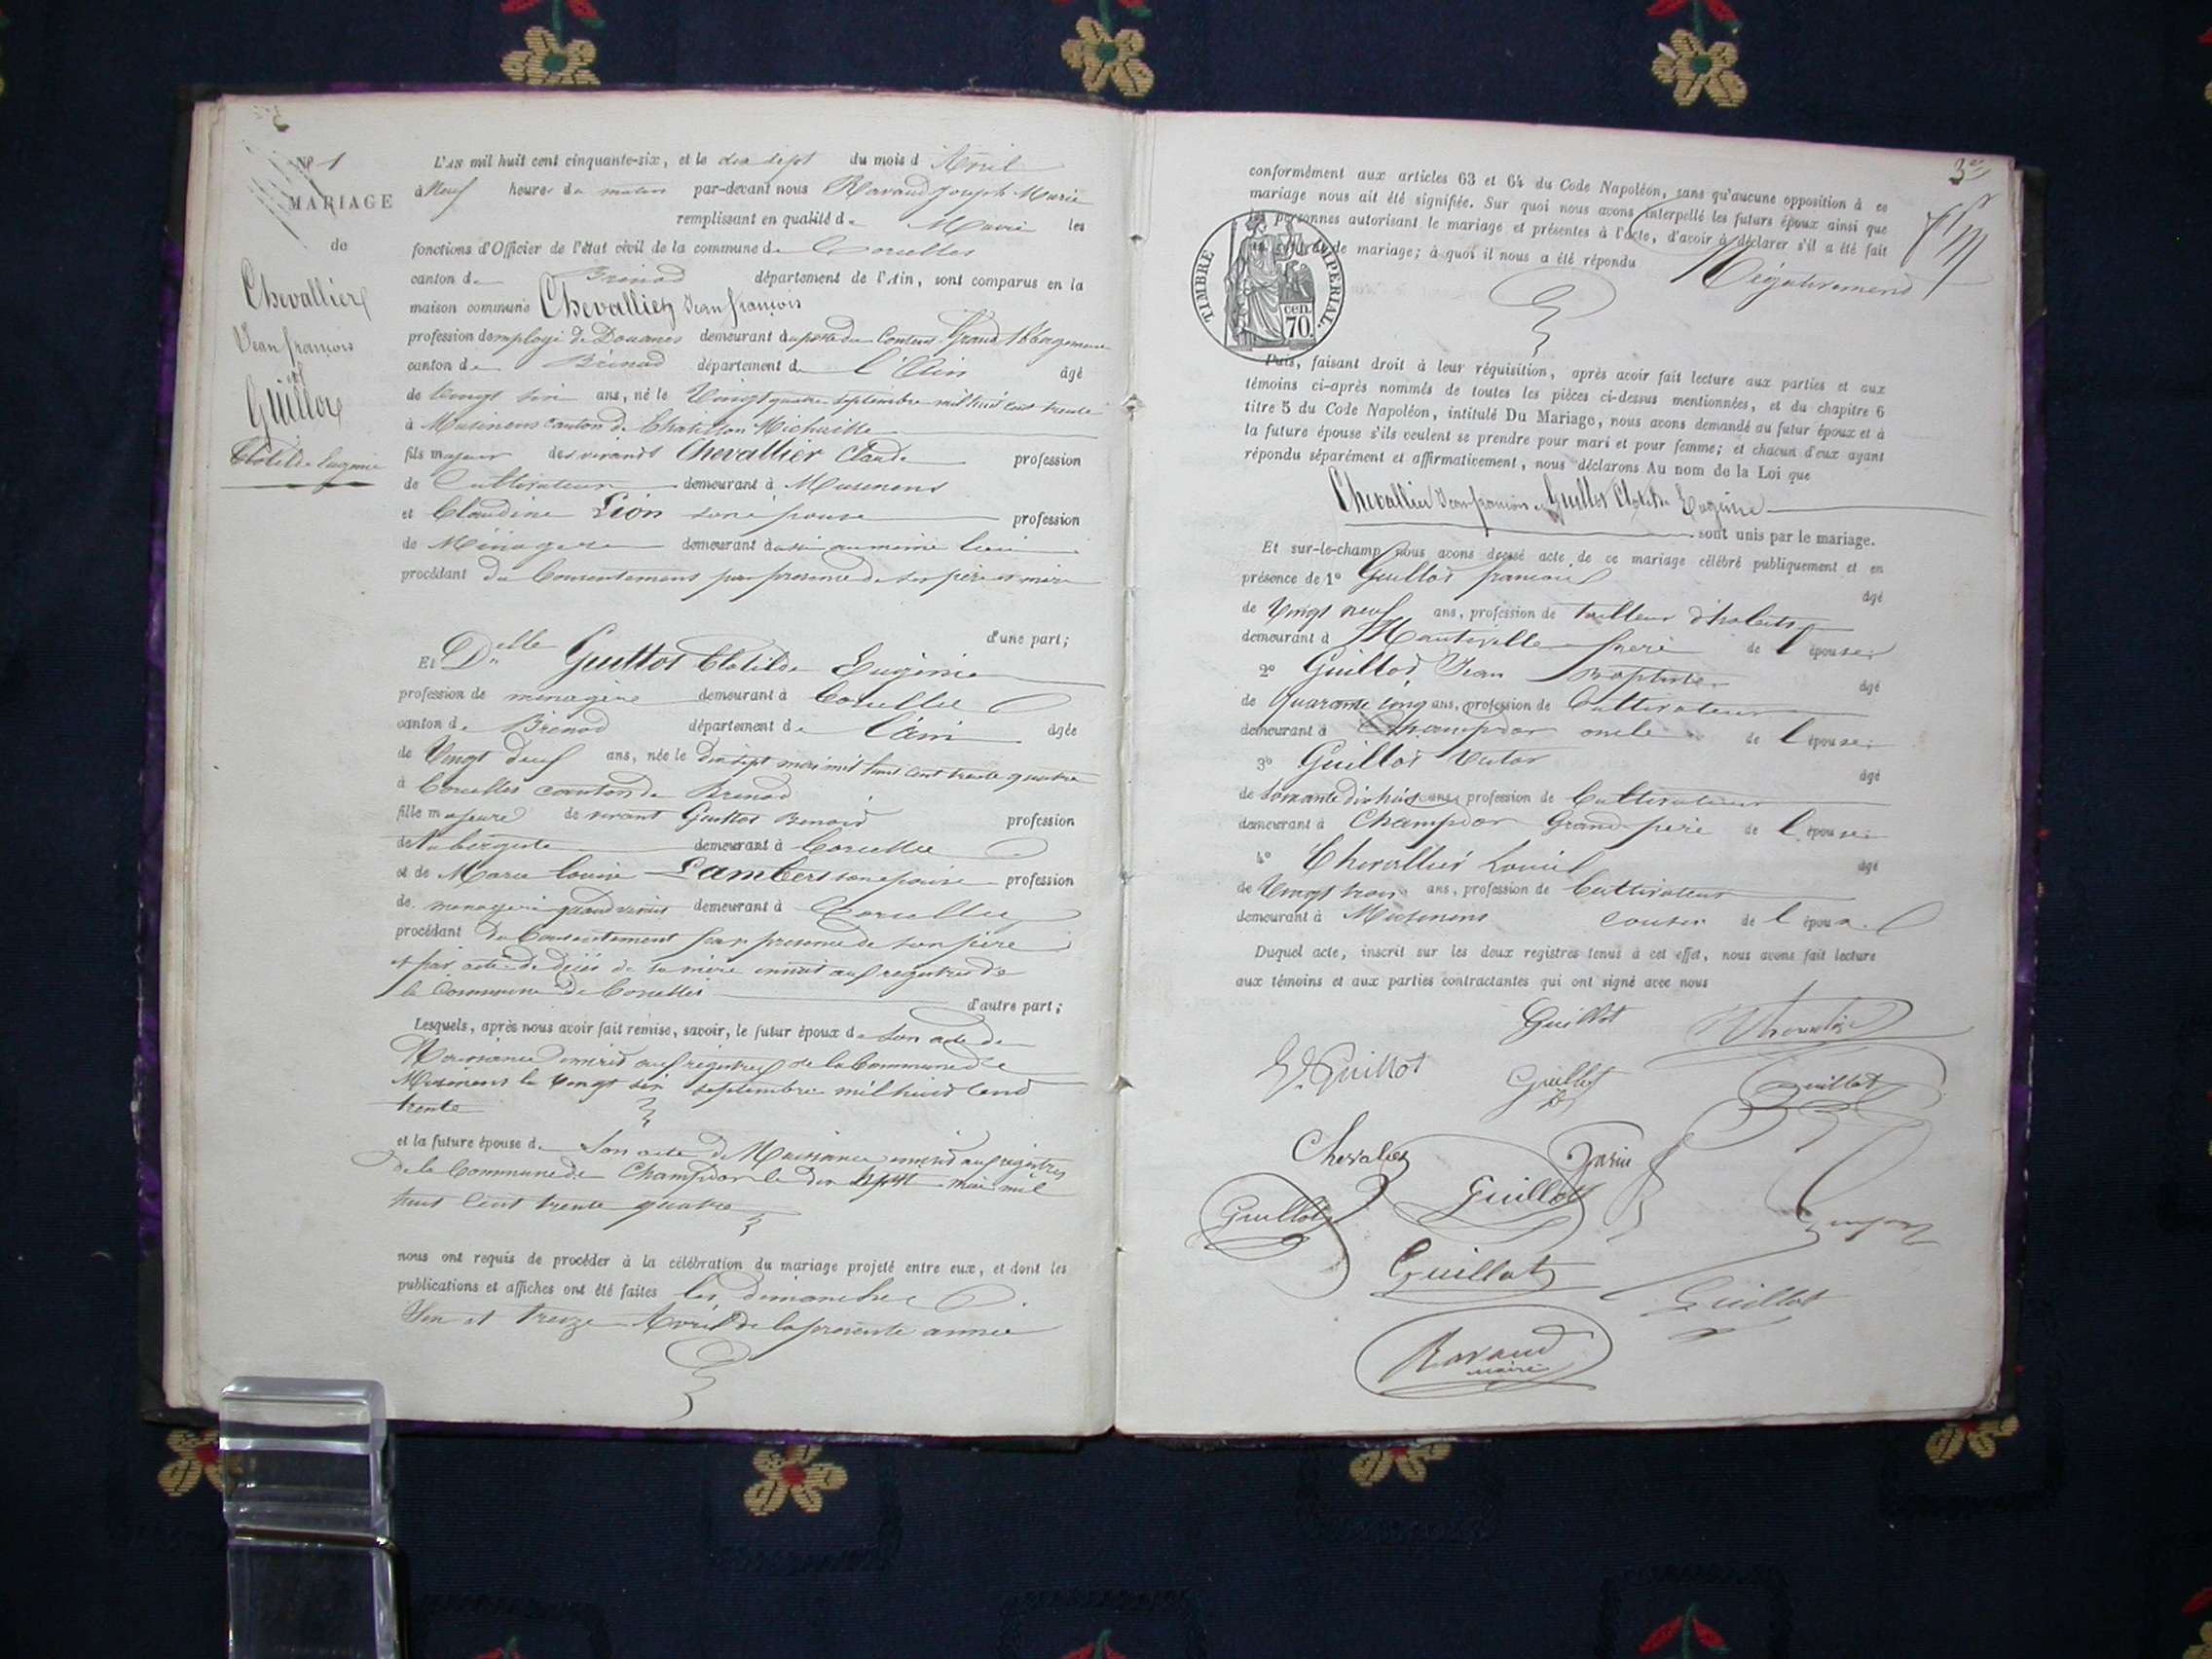 Nº 1
MARIAGE
de
Chevallier
Jean françois
et
Guillot
Clotilde Eugénie
L'AN mil huit cent cinquante-six, et le dix sept du mois d Avril
à Neuf heures du matin par-devant nous Ravaud Joseph Marie
remplissant en qualité de Maire les
fonctions d'Officier de l'état civil de la commune de Corcelles
canton de Brénod département de l'Ain, sont comparus en la
maison commune Chevallier Jean françois
profession d'employé de Douanes demeurant au poste du Grand Abbergement
canton de Brénod département de l'Ain âgé
de Vingt six ans, né le Vingt quatre septembre mil huit cent trente
à Musinens canton de Chatillon Michaille
fils majeur des vivants Chevallier Claude profession
de Cultivateur demeurant à Musinens
et Claudine Lion son épouse profession
de Ménagère demeurant aussi au même lieu
procédant du Consentement par présence de ses père et mère
d'une part;
Et Delle Guillot Clotilde Eugénie
profession de ménagère demeurant à Corcelles
canton de Brénod département de l'ain âgée
de Vingt deux ans, née le Dix sept mai mil huit cent trente quatre
à Corcelles canton de Brénod
fille majeure de vivant Guillot Benoit profession
de aubergiste demeurant à Corcelles
et de Marie Louise Lambert son épouse profession
de ménagère quand vivait demeurant à Corcelles
procédant du Consentement par présence de son père
et par acte de décès de sa mère inscrit aux registres de
la Commune de Corcelles d'autre part;
Lesquels, après nous avoir fait remise, savoir, le futur époux de son acte de
Naissance inscrit aux registres de la Commune de
Musinens le vingt six septembre mil huit cent
trente
et la future épouse de Son acte de Naissance inscrit aux registres
de la Commune de Champdor le dix sept mai mil
huit cent trente quatre
nous ont requis de procéder à la célébration du mariage projeté entre eux, et dont les
publications et affiches ont été faites les dimanches
Six et treize Avril de la présente année
3e
conformément aux articles 63 et 64 du Code Napoléon, sans qu'aucune opposition à ce
mariage nous ait été signifiée. Sur quoi nous avons interpellé les futurs époux ainsi que
les personnes autorisant le mariage et présentes à l'acte, d'avoir à déclarer s'il a été fait
de mariage; à quoi il nous a été répondu Négativement
TIMBRE IMPERIAL
70 cen.
Puis, faisant droit à leur réquisition, après avoir fait lecture aux parties et aux
témoins ci-après nommés de toutes les pièces ci-dessus mentionnées, et du chapitre 6
titre 5 du Code Napoléon, intitulé Du Mariage, nous avons demandé au futur époux et à
la future épouse s'ils veulent se prendre pour mari et pour femme; et chacun d'eux ayant
répondu séparément et affirmativement, nous déclarons Au nom de la Loi que
Chevallier Jean françois et Guillot Clotilde Eugénie
sont unis par le mariage.
Et sur-le-champ nous avons dressé acte de ce mariage célébré publiquement et en
présence de 1º Guillot françois âgé
de Vingt neuf ans, profession de tailleur d'habits
demeurant à frère de l'épouse
2º Guillot Jean Baptiste âgé
de Quarante cinq ans, profession de Cultivateur
demeurant à Champdor oncle de l'épouse
3º Guillot Victor âgé
de Soixante dix huit ans, profession de Cultivateur
demeurant à Champdor Grand père de l'épouse
4º Chevallier Louis âgé
de Vingt trois ans, profession de Cultivateur
demeurant à Musinens cousin de l'époux
Duquel acte, inscrit sur les deux registres tenus à cet effet, nous avons fait lecture
aux témoins et aux parties contractantes qui ont signé avec nous
Guillot
Guillot
Guillot
Guillot
Chevalier
Guillot
Guillot
Guillot
Guillot
Ravaud
maire